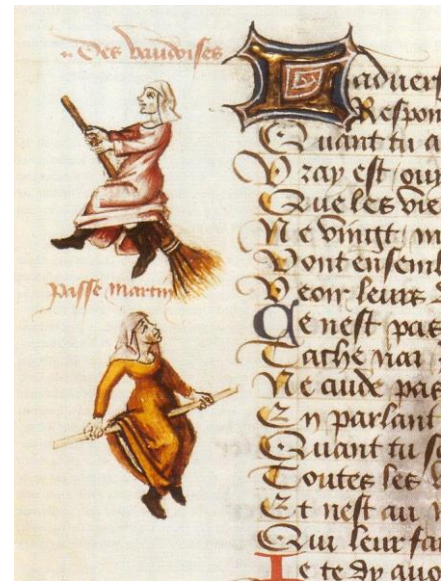 Des vaudoises
passe martin
L adver
Respon
Quant tu a
Vray est / ouy
Que les vie
Ne vingt / ni
Vont ensemb
Veoir leurs
Ce nest pas
Tache nai
Ne cuide pas
En parlant
Quant tu so
Toutes les
Et nest au
Qui leur fai
Je te dy avo